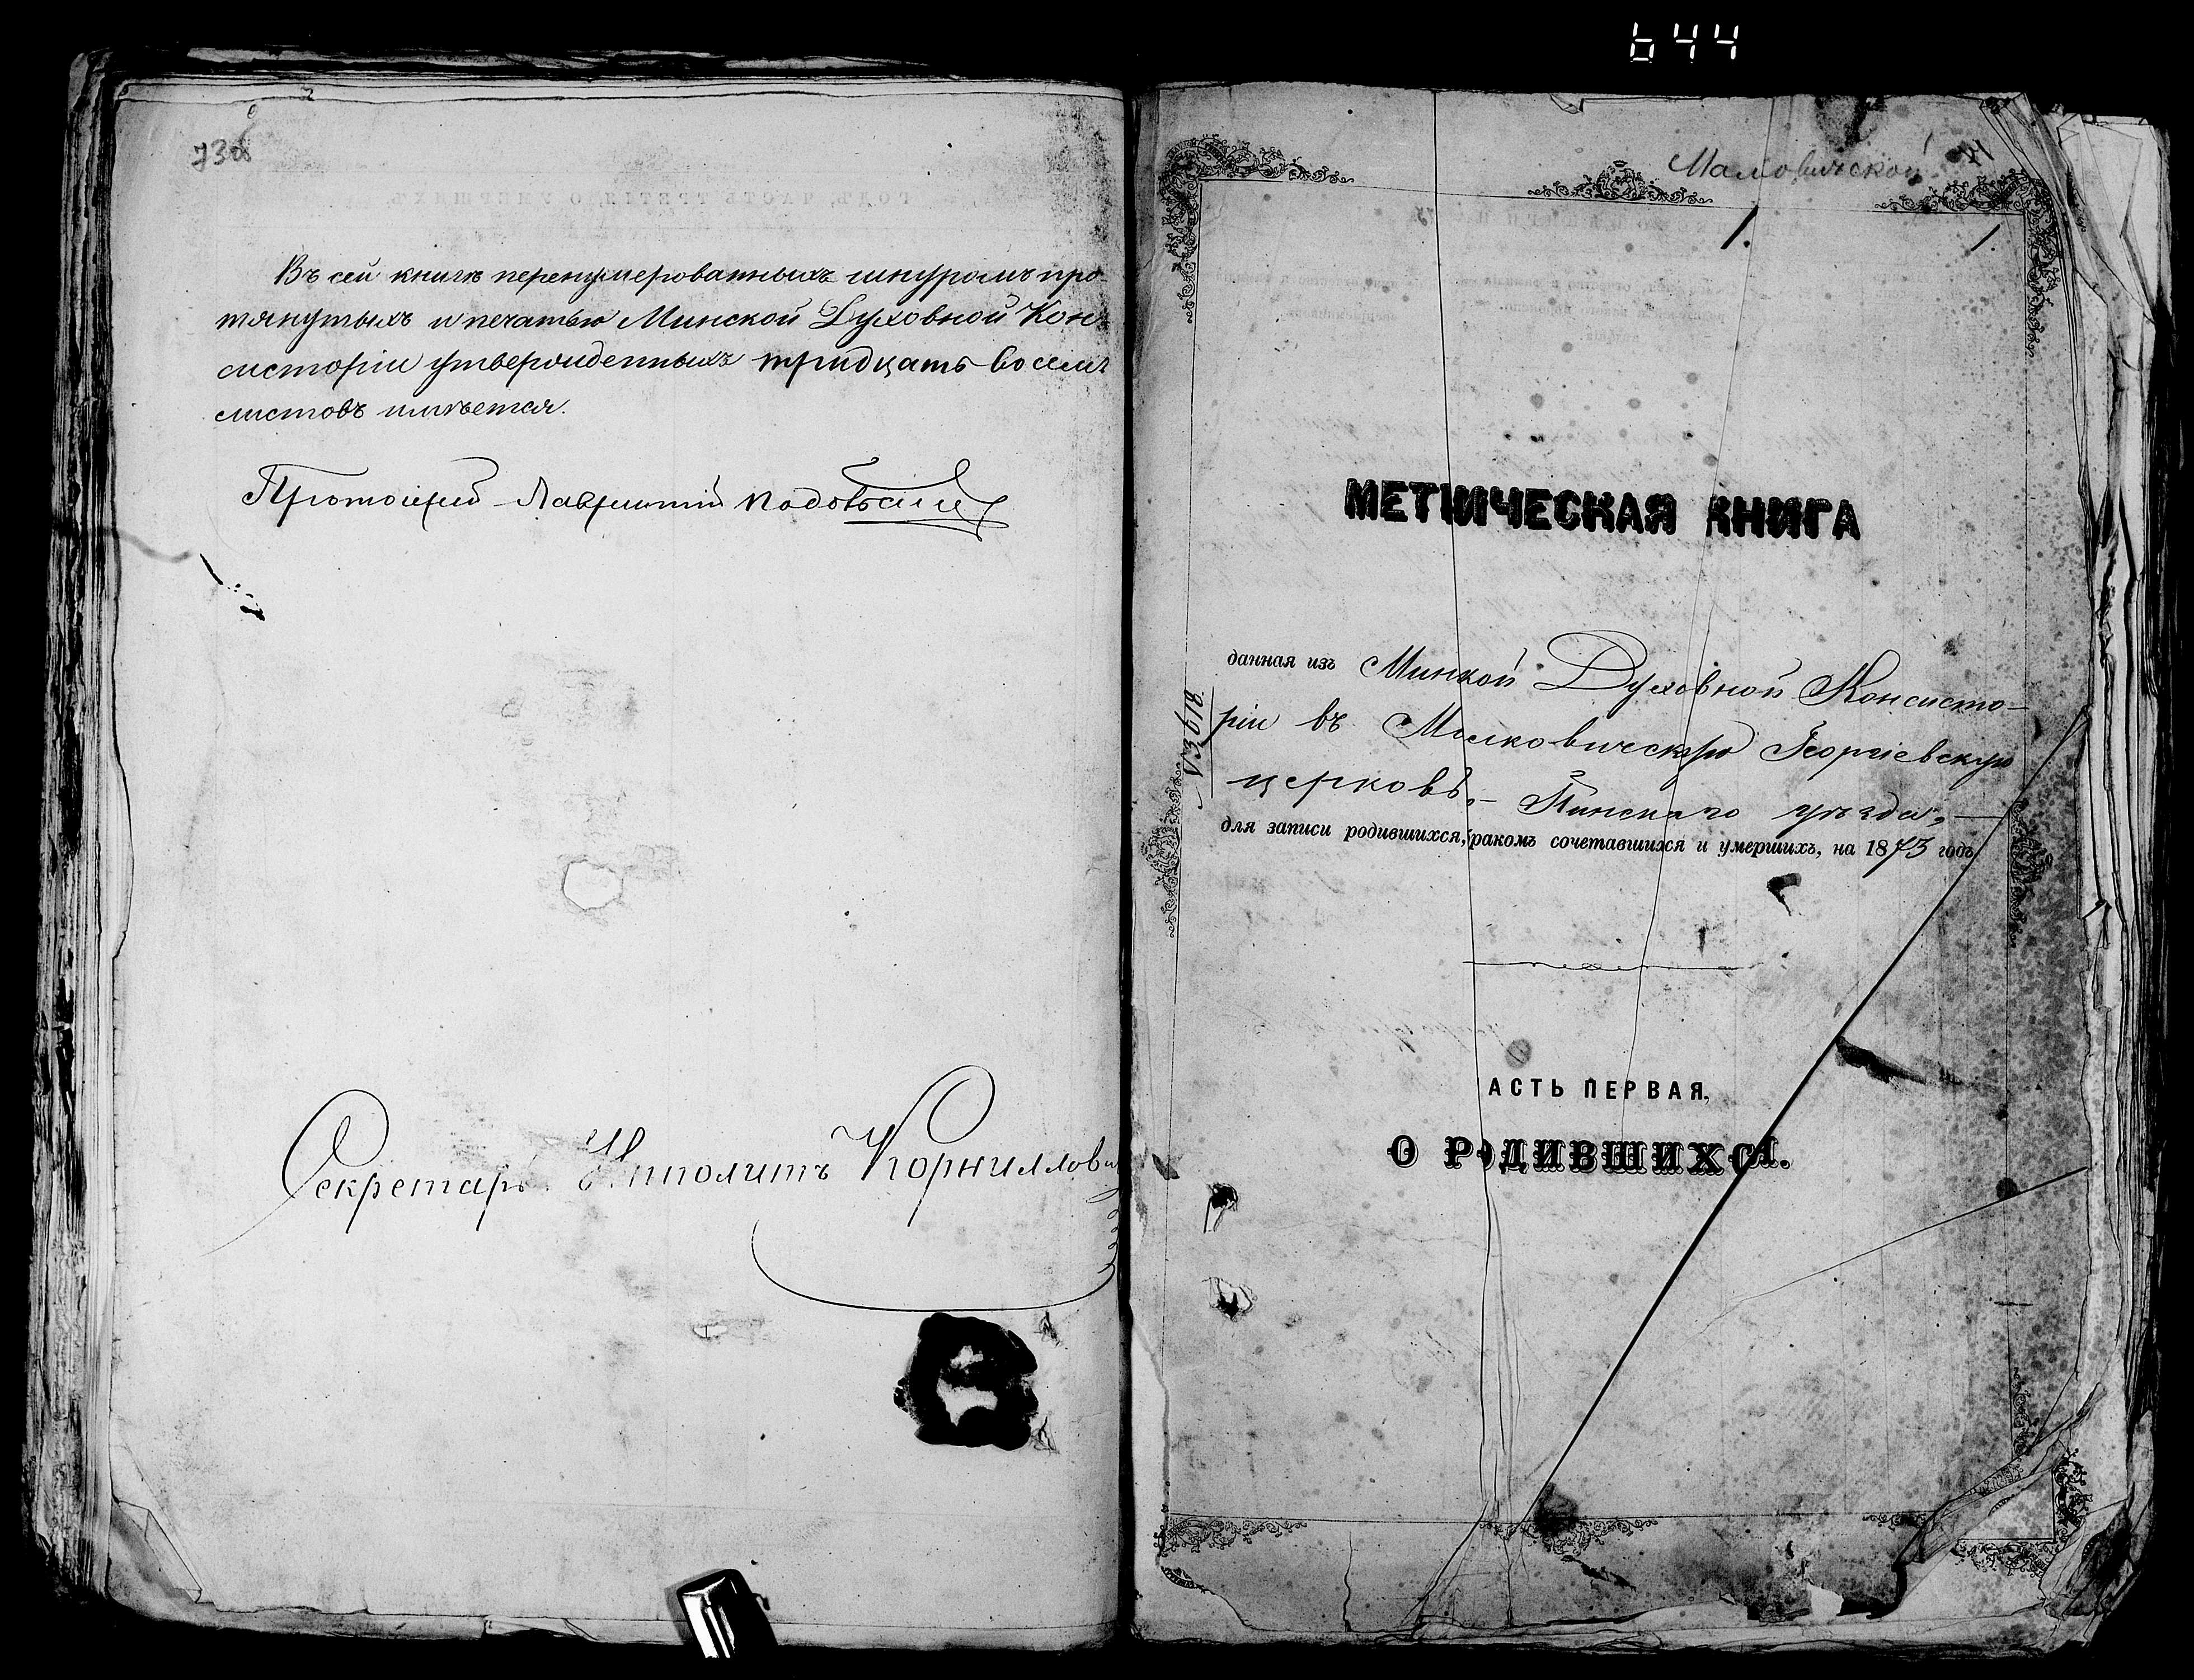 644
730
Въ сей книгѣ перенумерованныхъ шнуромъ про-
тянутыхъ и печатью Минской Духовной Кон-
систоріи утвержденныхъ тридцать восемь
листовъ имѣется.
Протоіерей Лаврентій
Секретарь Ипполитъ Корниллов
1.
1.
МЕТРИЧЕСКАЯ КНИГА
данная изъ Минской Духовной Консисто-
ріи въ Малковическую Георгіевскую
церковь, Пинскаго уѣзда,
для записи родившихся, бракомъ сочетавшихся и умершихъ, на 1873 годъ
АСТЬ ПЕРВАЯ.
О РОДИВШИХСЯ.